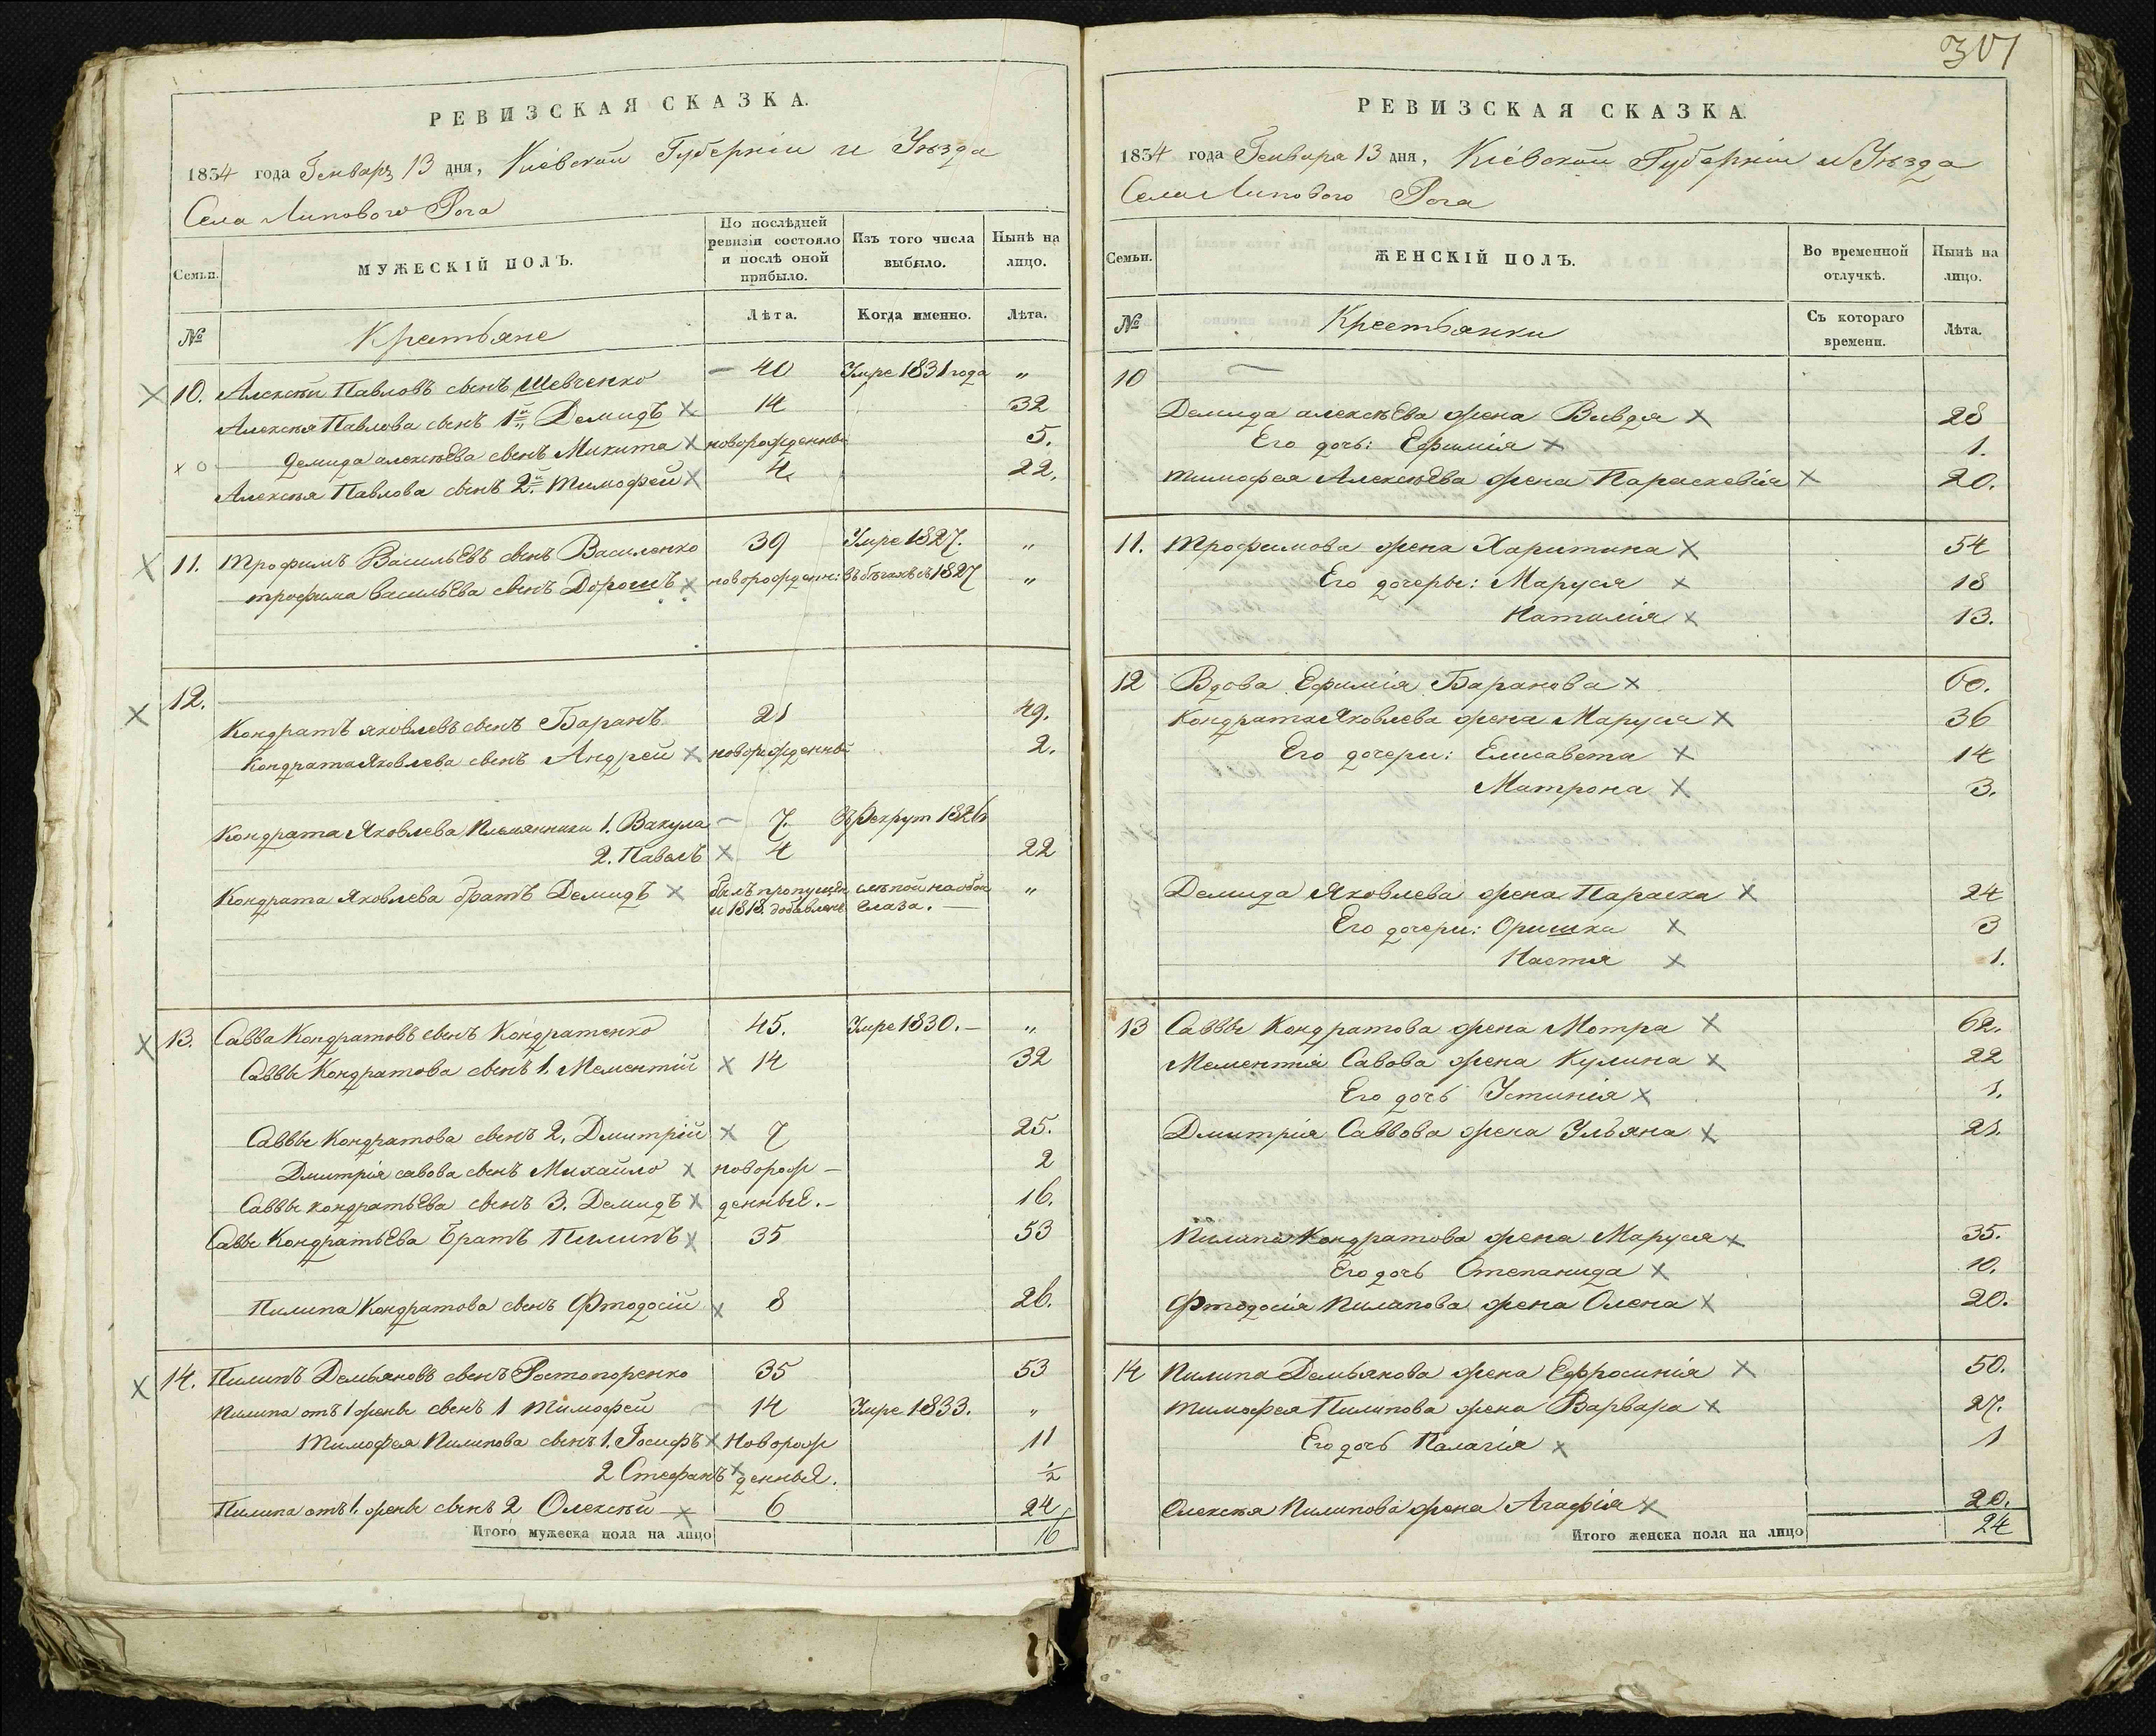 РЕВИЗСКАЯ СКАЗКА.
1834 года Генваря 13 дня, Кіевской Губерніи и Уѣзда
Села Липового Рога
Семьи.
МУЖЕСКІЙ ПОЛЪ.
По послѣдней ревизіи состояло и послѣ оной прибыло.
Изъ того числа выбыло.
Нынѣ на лицо.
№
Крестьяне
Лѣта.
Когда именно.
Лѣта.
10. Алексѣй Павловъ сынъ Шевченко — 40 Умре 1831 года „
Алексѣя Павлова сынъ 1й Демидъ 14 32
Демида алексѣева сынъ Микита новорожденный 5.
Алексѣя Павлова сынъ 2й Тимофей 4 22.
11. Трофимъ Васильевъ сынъ Василенко 39 Умре 1827. „
трофима васильева сынъ Дорошъ новорожден: въ бѣгахъ съ 1827 „
12.
Кондратъ яковлевъ сынъ Баранъ 21 49.
Кондрата Яковлева сынъ Андрей новорожденный 2.
Кондрата Яковлева Племянники 1. Вакула — 7. въ Рекрут 1826
2. Павелъ 4 22
Кондрата Яковлева братъ Демидъ былъ пропущен слѣпой на оба „
и 1818. добавленъ глаза. —
13. Савва Кондратовъ сынъ Кондратенко 45. Умре 1830. — „
Саввы Кондратова сынъ 1. Мементій 14 32
Саввы Кондратова сынъ 2. Дмитрій 7 25.
Дмитрія савова сынъ Михайло новорож — 2
Саввы кондратьева сынъ 3. Демидъ денные. — 16.
Саввы Кондратьева братъ Пилипъ 35 53
Пилипа Кондратова сынъ Фтодосій 8 26.
14. Пилипъ Демьяновъ сынъ Ростопоренко 35 53
Пилипа отъ 1 жены сынъ 1 Тимофей 14 Умре 1833. „
Тимофея Пилипова сынъ 1. Іосифъ Новорож 11
2 Стефанъ денные. ½
Пилипа отъ 1. жены сынъ 2 Олексѣй 6 24
Итого мужеска пола на лицо 16
301
РЕВИЗСКАЯ СКАЗКА.
1834 года Генваря 13 дня, Кіевской Губерніи и Уѣзда
Села Липового Рога
Семьи.
ЖЕНСКІЙ ПОЛЪ.
Во временной отлучкѣ.
Нынѣ на лицо.
№
Крестьянки
Съ котораго времени.
Лѣта.
10 —
Демида алексѣева жена Вивдя 28
Его дочь: Ефимія 1.
Тимофея Алексѣева жена Параскевія 20.
11. Трофимова жена Харитина 54
Его дочеры: Маруся 18
Наталія 13.
12 Вдова Ефимія Баранова 60.
Кондрата Яковлева жена Маруся 36
Его дочери: Елисавета 14
Матрона 3.
Демида Яковлева жена Параска 24
Его дочери: Оришка 3
Настя 1.
13 Саввы Кондратова жена Мотра 62.
Мементія Савова жена Кулина 22
Его дочь Устинія 1.
Дмитрія Саввова жена Ульяна 21.
Пилипа Кондратова жена Маруся 35.
Его дочь Степанида 10.
Фтодосія Пилипова жена Олена 20.
14 Пилипа Демьянова жена Ефросинія 50.
Тимофея Пилипова жена Варвара 27.
Его дочь Палагія 1
Олексѣя Пилипова жена Агафія 20.
Итого женска пола на лицо 24